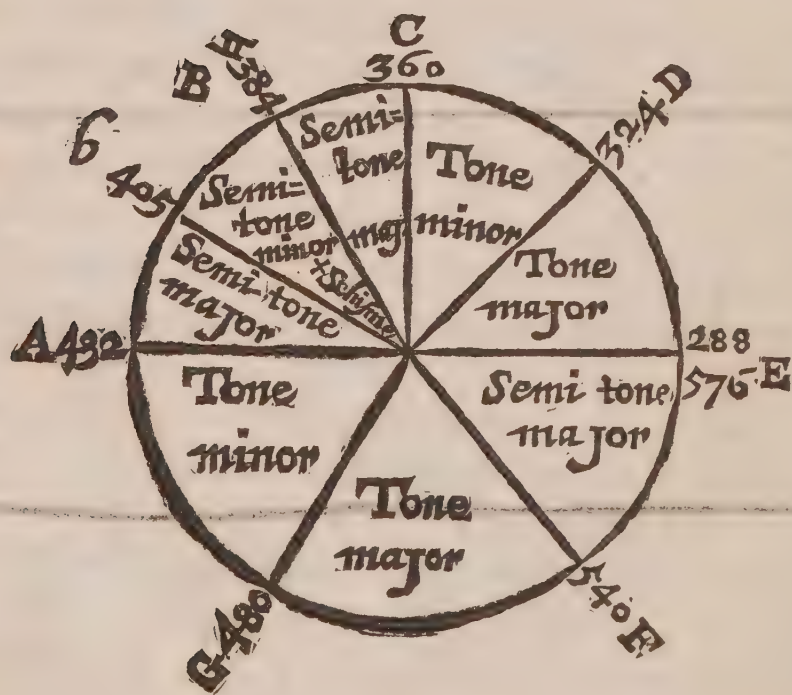 C
360
324 D
288
576 E
540 F
G 480
A 432
6 405
B ♮ 384
Semi=
tone
maj
Tone
minor
Tone
major
Semi tone
major
Tone
major
Tone
minor
Semi tone
major
Semi=
tone
minor
+ Schisme